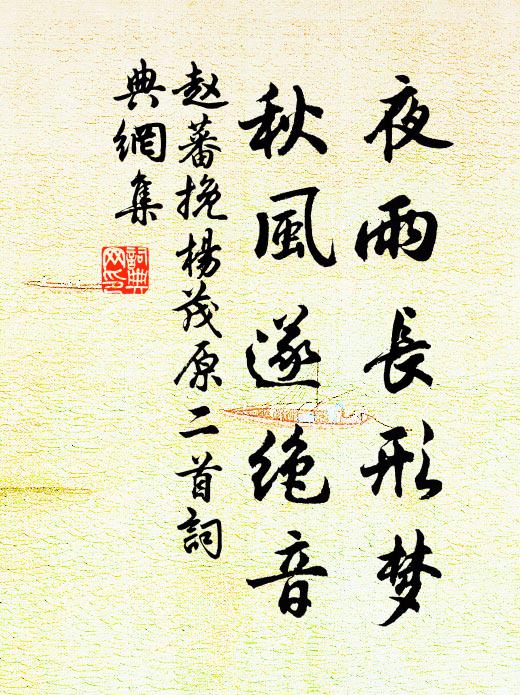 夜雨長形梦
秋風遂绝音
赵蕃挽楊茂原二首詞
典網集
詞典
网印